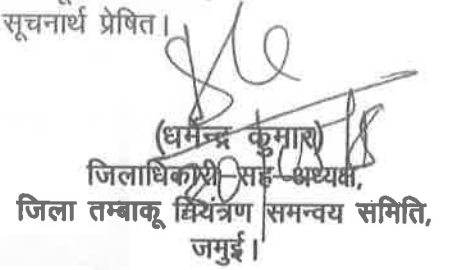 सूचनार्थ प्रेषित।
(धर्मेन्द्र कुमार)
जिलाधिकारी-सह-अध्यक्ष,
जिला तम्बाकू नियंत्रण समन्वय समिति,
जमुई।